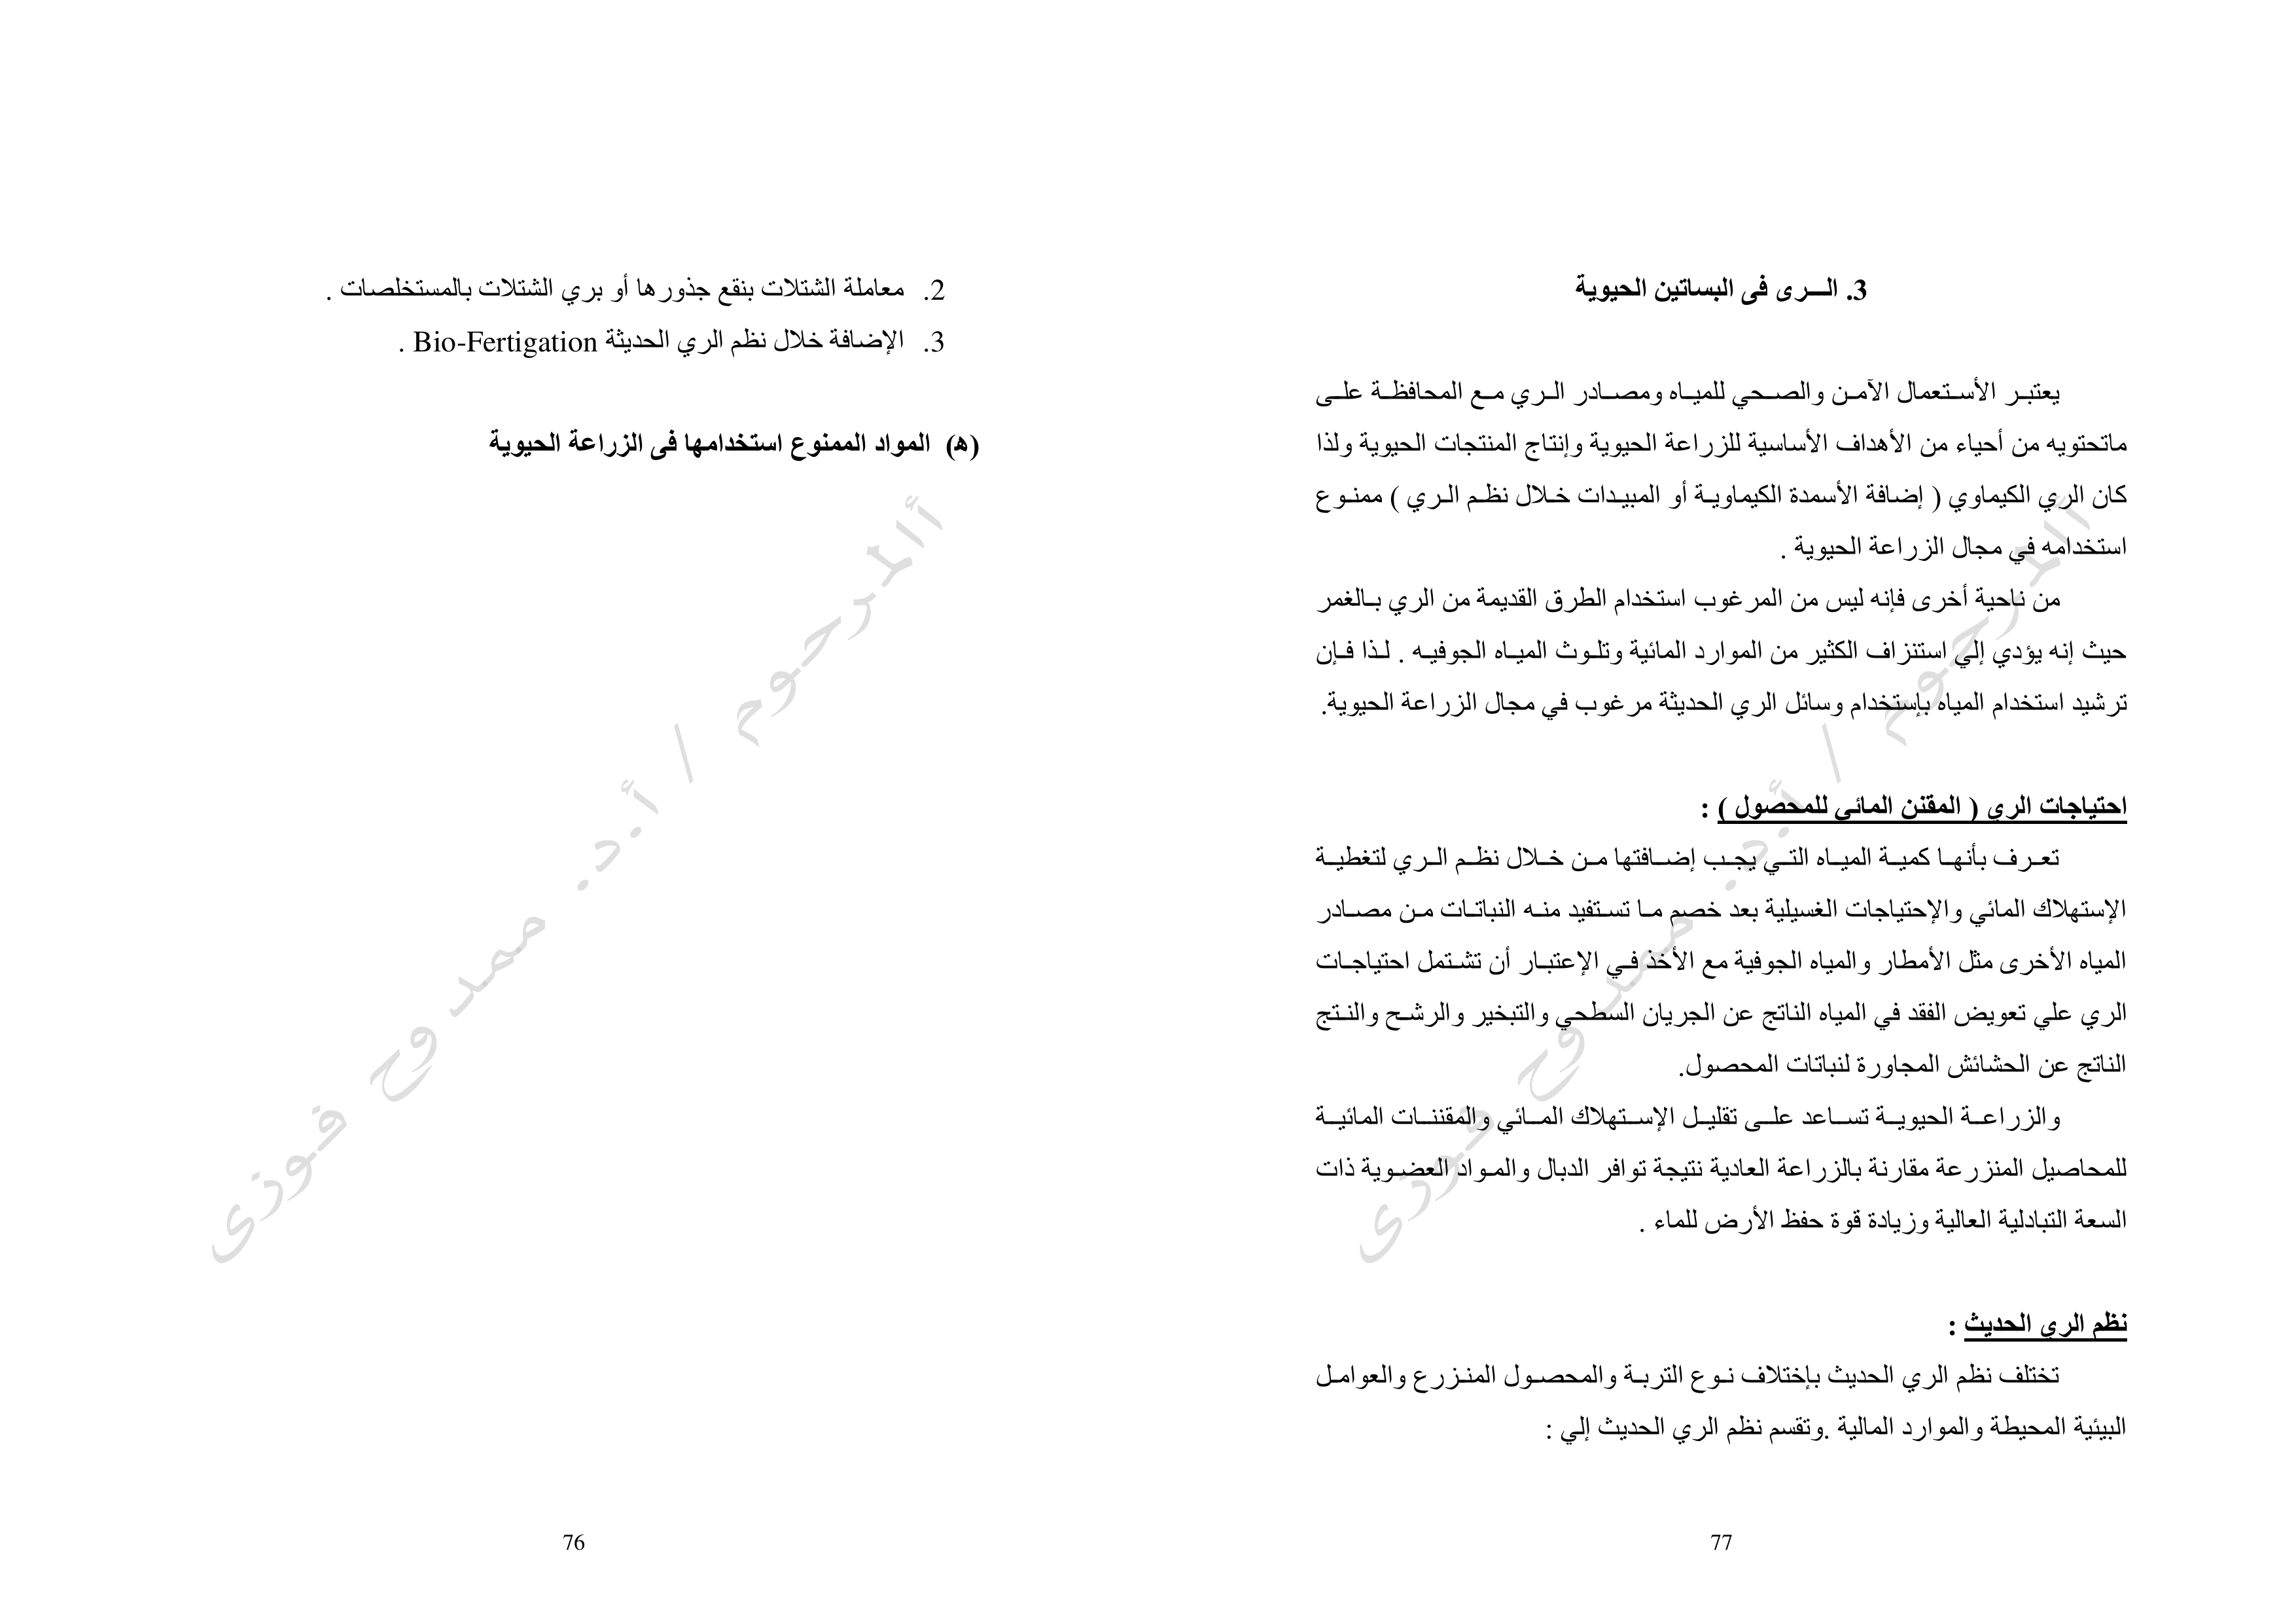 2. معاملة الشتلات بنقع جذورها أو بري الشتلات بالمستخلصات .
3. الإضافة خلال نظم الري الحديثة Bio-Fertigation .
(ه) المواد الممنوع استخدامها فى الزراعة الحيوية
المرحوم / أ.د. ممدوح فوزى
76
3. الـــرى فى البساتين الحيوية
يعتبر الأستعمال الآمن والصحي للمياه ومصادر الري مع المحافظة على
ماتحتويه من أحياء من الأهداف الأساسية للزراعة الحيوية وإنتاج المنتجات الحيوية ولذا
كان الري الكيماوي ( إضافة الأسمدة الكيماوية أو المبيدات خلال نظم الري ) ممنوع
استخدامه في مجال الزراعة الحيوية .
من ناحية أخرى فإنه ليس من المرغوب استخدام الطرق القديمة من الري بالغمر
حيث إنه يؤدي إلي استنزاف الكثير من الموارد المائية وتلوث المياه الجوفيه . لذا فإن
ترشيد استخدام المياه بإستخدام وسائل الري الحديثة مرغوب في مجال الزراعة الحيوية.
احتياجات الري ( المقنن المائي للمحصول ) :
تعرف بأنها كمية المياه التي يجب إضافتها من خلال نظم الري لتغطية
الإستهلاك المائي والإحتياجات الغسيلية بعد خصم ما تستفيد منه النباتات من مصادر
المياه الأخرى مثل الأمطار والمياه الجوفية مع الأخذ في الإعتبار أن تشتمل احتياجات
الري علي تعويض الفقد في المياه الناتج عن الجريان السطحي والتبخير والرشح والنتج
الناتج عن الحشائش المجاورة لنباتات المحصول.
والزراعة الحيوية تساعد على تقليل الإستهلاك المائي والمقننات المائية
للمحاصيل المنزرعة مقارنة بالزراعة العادية نتيجة توافر الدبال والمواد العضوية ذات
السعة التبادلية العالية وزيادة قوة حفظ الأرض للماء .
نظم الري الحديث :
تختلف نظم الري الحديث بإختلاف نوع التربة والمحصول المنزرع والعوامل
البيئية المحيطة والموارد المالية .وتقسم نظم الري الحديث إلي :
المرحوم / أ.د. ممدوح فوزى
77